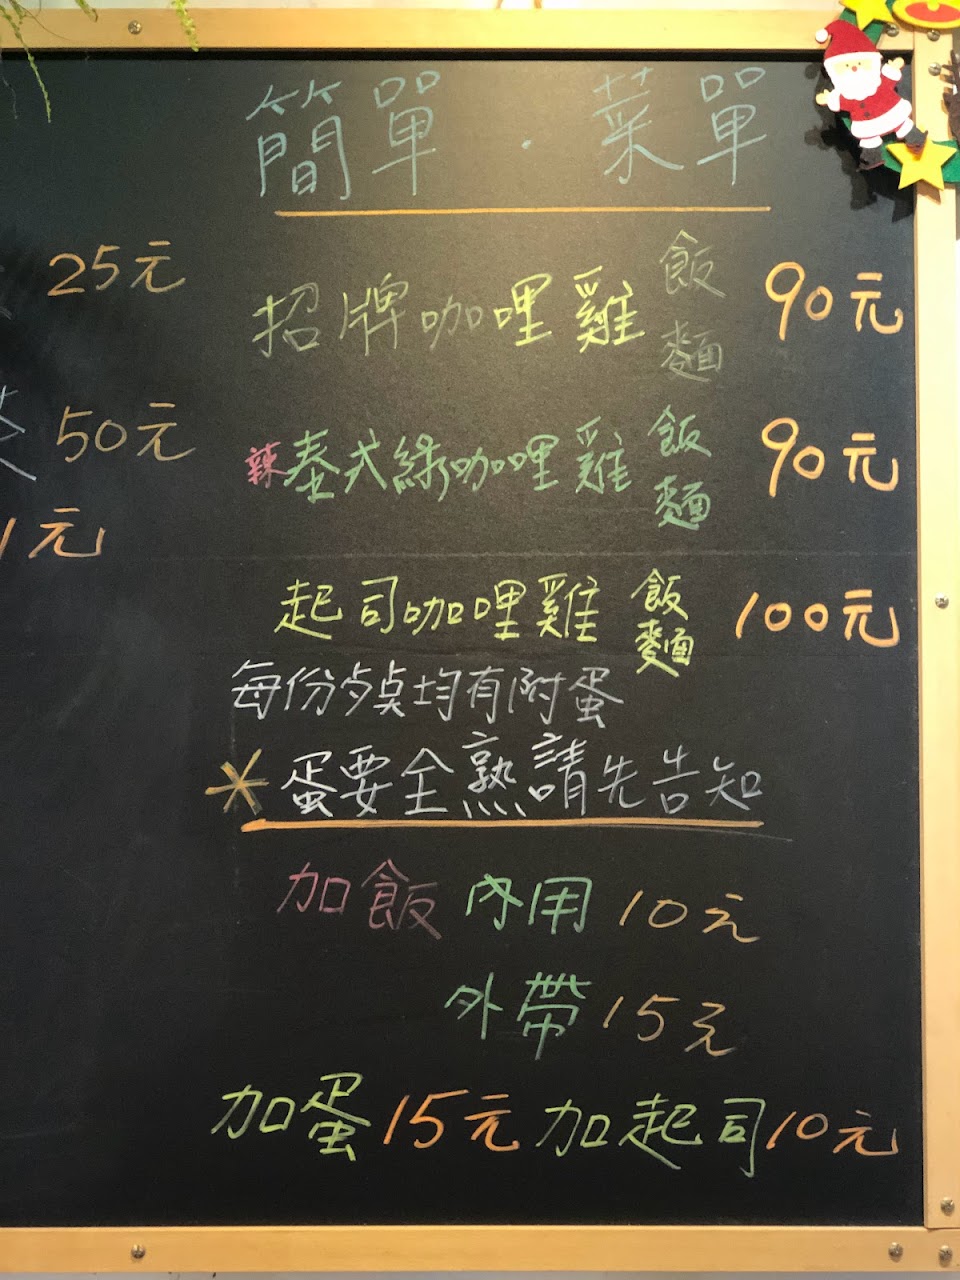 簡單・菜單
25元
招牌咖哩雞 飯 麵 90元
50元
辣泰式綠咖哩雞 飯 麵 90元
1元
起司咖哩雞 飯 麵 100元
每份均有附蛋
*蛋要全熟請先告知
加飯 內用 10元
外帶 15元
加蛋15元 加起司10元